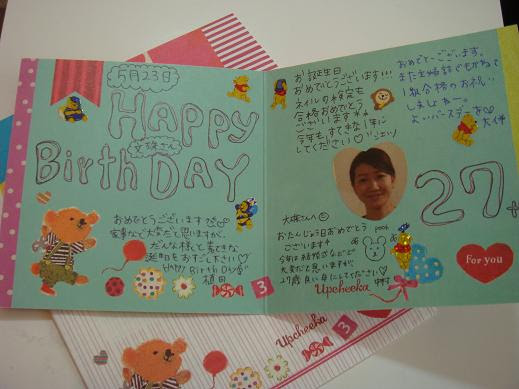 5月23日
HAPPY
Birth DAY
おめでとうございます
家事など大変だと思いますが、
だんな様と素敵な
誕生日をお過ごし下さい♡
HAPPY Birth DAY
植田
3
お誕生日
おめでとうございます!!!
ネイルの検定も
合格おめでとう
ございます
今年も、すてきな1年に
してください♡
おめでとーございます。
1級合格のお祝い
しましょー。
27
おたんじょう日おめでとう
pooh
ございます
今年は結婚式などで
大変だと思いますが
27歳良い年にしてください
Upcheeka
For you
Upcheeka
3